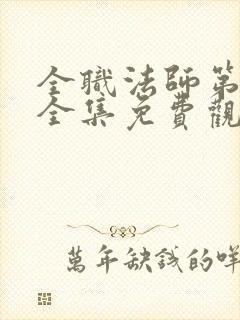 全職法師第
全集免費觀
萬年缺錢的咩